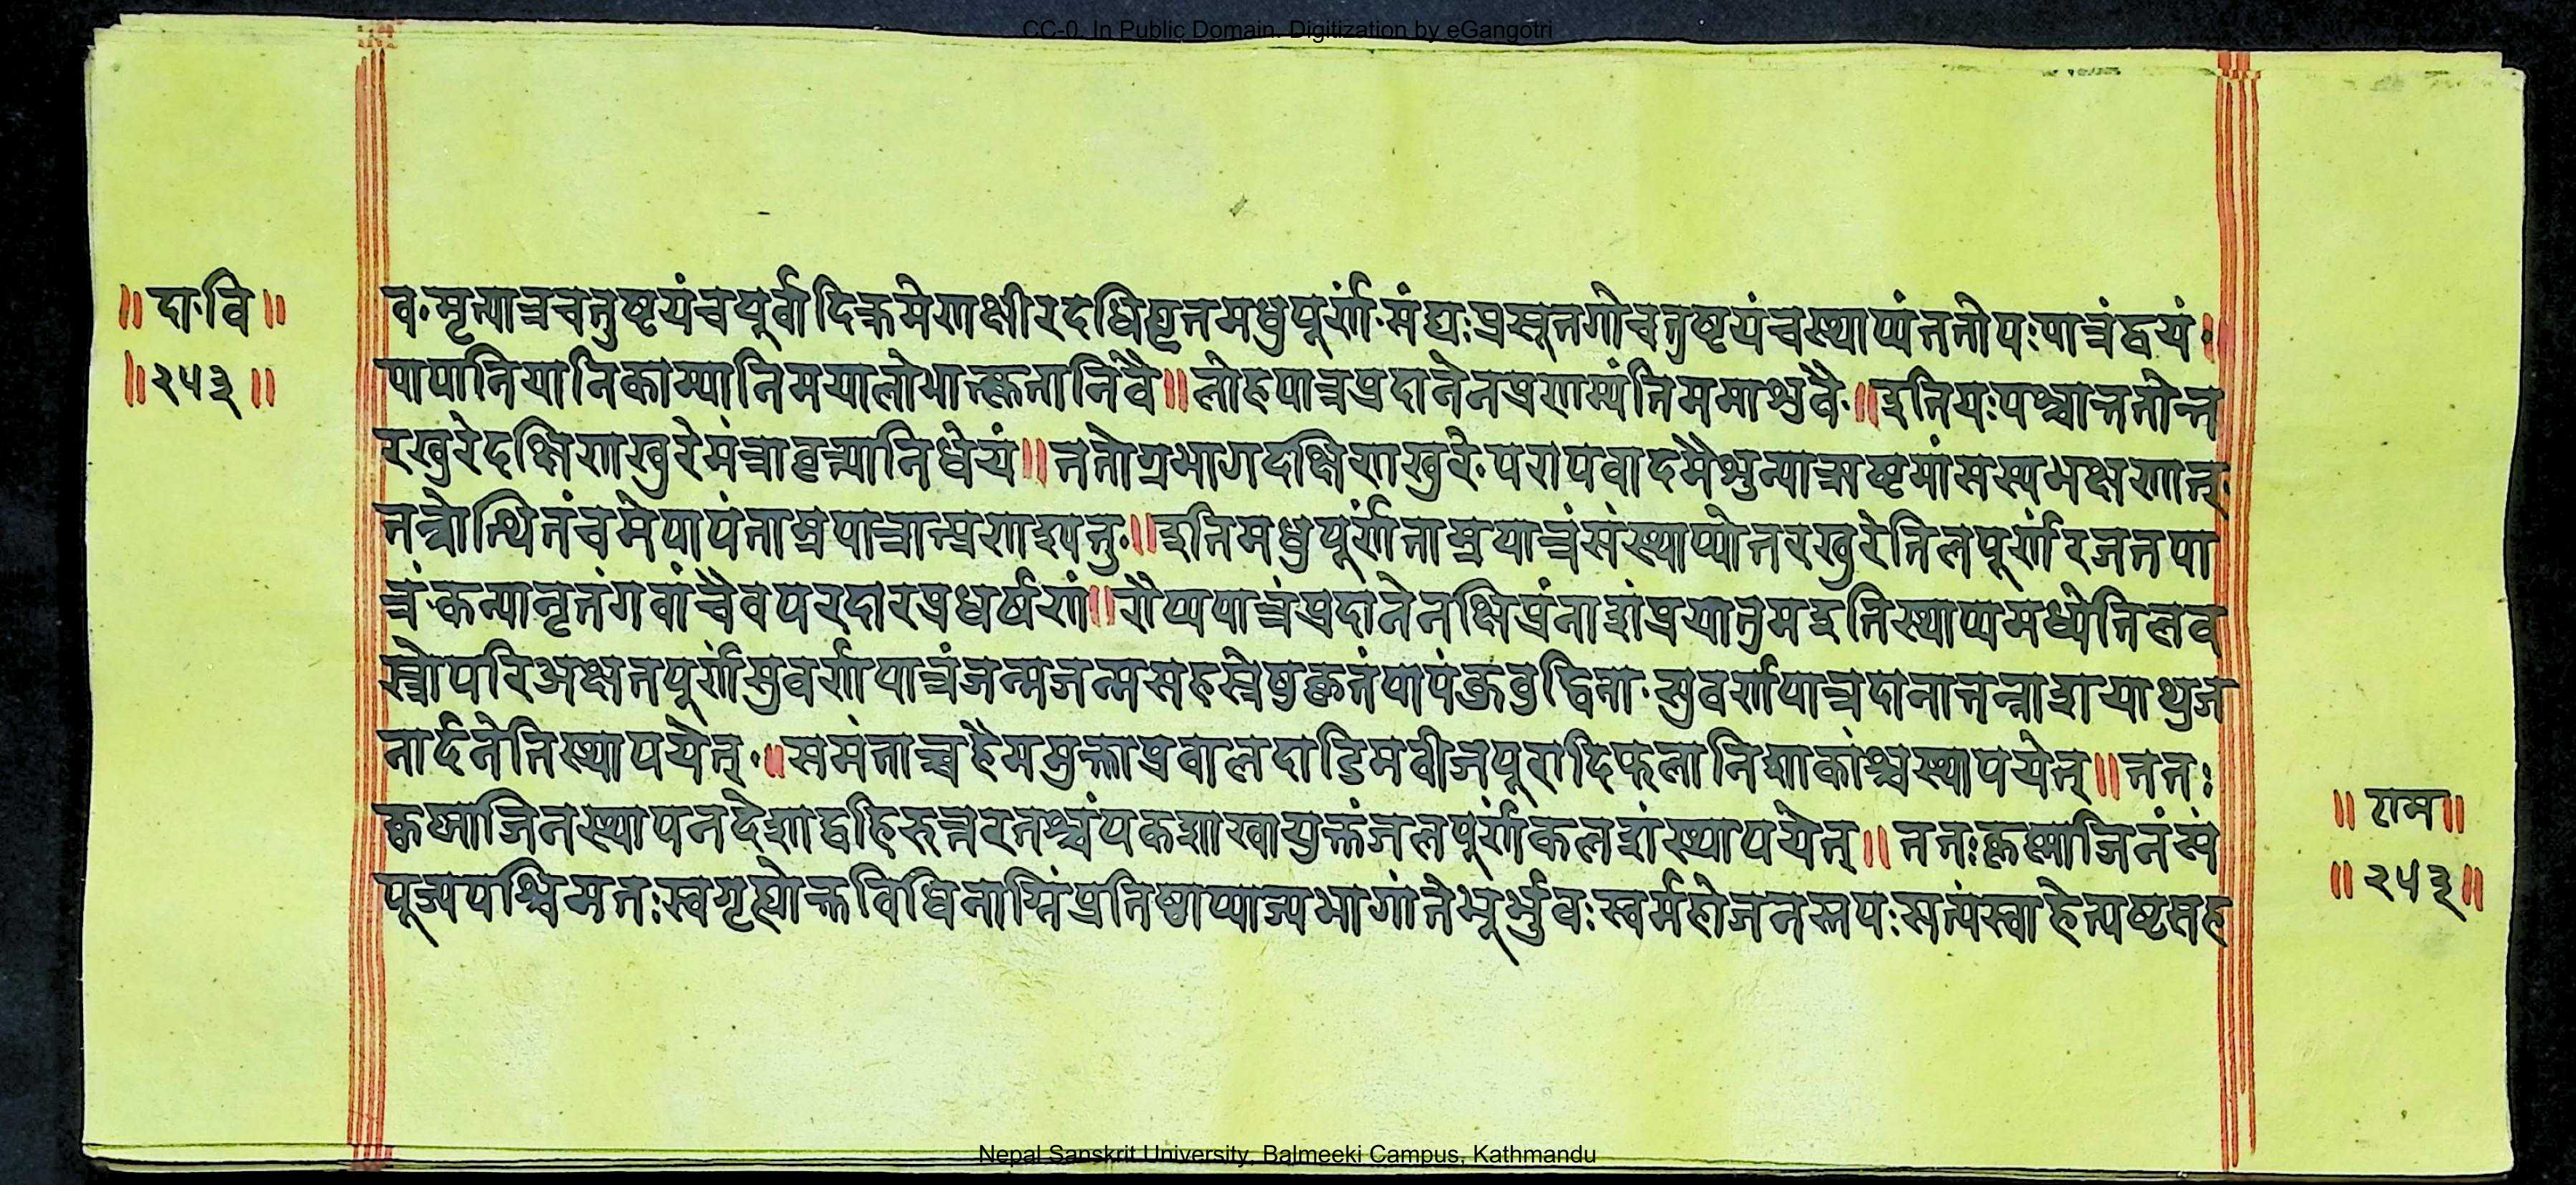 CC-0. In Public Domain. Digitization by eGangotri
॥ दा॰ वि ॥
॥ २५३ ॥
व॰मृत्पात्रचतुष्टयंचपूर्वादिक्रमेणक्षीरदधिघृतमधुपूर्णं॰मंद्यःप्रसूतगोचतुष्टयंचस्थाप्यंततोपःपात्रंद्वयं॰।
पापानियानिकाम्यानिमयालोभात्कृतानिवै॥लोहपात्रप्रदानेनप्रणाम्यंतिममाश्रुवै॰॥इतियःपश्चात्ततोन्त
रखुरेदक्षिणखुरेमंत्रावृत्त्यानिधेयं॥ततोग्रभागदक्षिणखुरे॰परापवादमैश्रुन्यात्मष्टमांसस्यभक्षणात्॰
तत्रोत्थितंचमेपापंताम्रपात्रात्प्रणाश्यतु॰॥इतिमधुपूर्णंताम्रपात्रंसंस्थाप्योत्तरखुरेतिलपूर्णंरजतपा
त्रं॰कन्यानृतंगवांचैवपरदारप्रधर्षणं॥रौप्यपात्रंप्रदानेनक्षिप्रंनाशंप्रयातुमइतिस्थाप्यमध्येतिलव
स्त्रोपरिअक्षतपूर्णंसुवर्णपात्रंजन्मजन्मसहस्रेषुकृतंपापंकुबुद्धिना॰सुवर्णपात्रदानात्तन्नाशयाशुज
नार्दनेतिस्थापयेत्॰॥समंताच्चहैममुक्ताप्रवालदाडिमवीजपूरादिफलानिशाकांश्चस्थापयेत्॥ततः
कृष्णाजिनस्थापनदेशाद्बहिरुत्तरतश्चंपकशाखायुक्तंजलपूर्णंकलशंस्थापयेत्॥ततःकृष्णाजिनंसं
पूज्यपश्चिमतःस्वगृह्योक्तविधिनाग्निंप्रतिष्ठाप्याज्यभागांतेभूर्भुवःस्वर्महोजनस्तपःसत्यंस्वाहेत्यष्टसह
॥ राम ॥
॥ २५३ ॥
Nepal Sanskrit University, Balmeeki Campus, Kathmandu